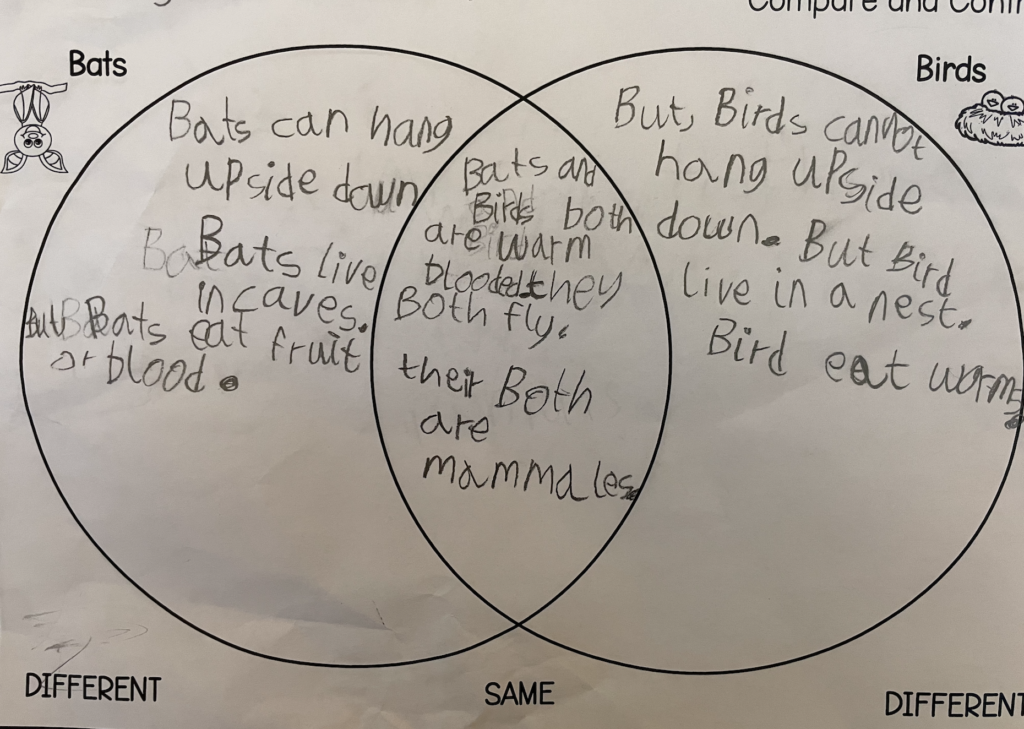 Compare and Contr
Bats
Birds
Bats can hang
upside down
Bats live
in caves.
But Bats eat fruit
or blood.
Bats and
Birds both
are warm
blooded they
Both fly.
their Both
are
mammales.
But, Birds cannot
hang upside
down. But Bird
live in a nest.
Bird eat worms
DIFFERENT
SAME
DIFFERENT